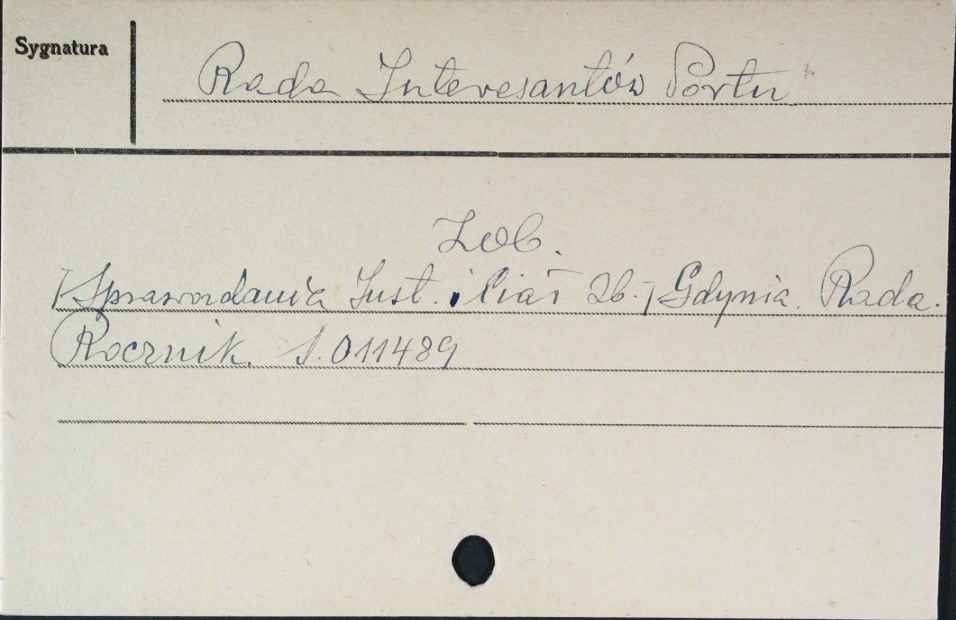 Sygnatura
Rada Interesantów Portu
Zob.
[Sprawozdania Inst. i 26.] Gdynia. Rada.
Rocznik. S.011489